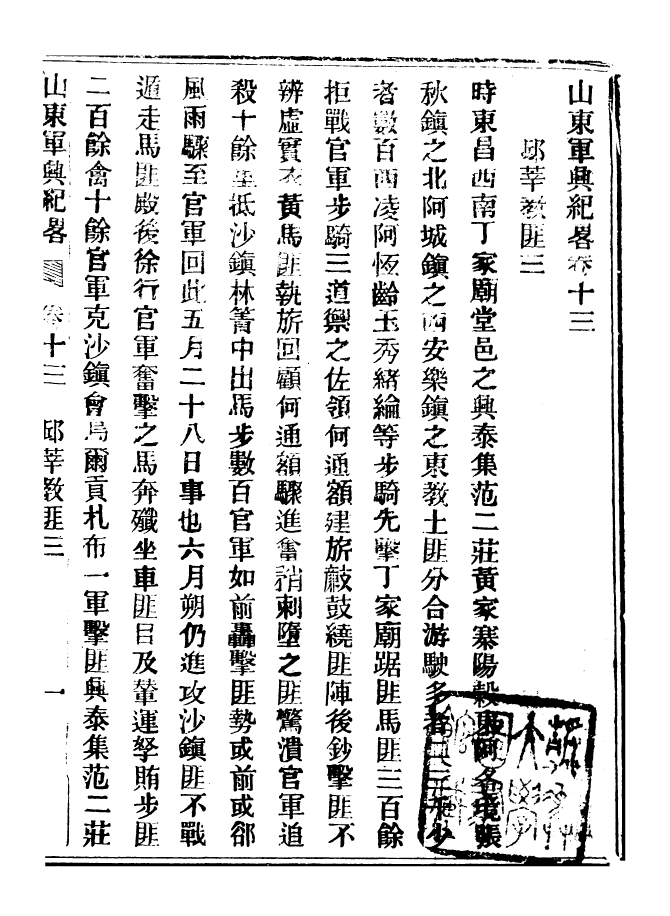 山東軍興紀畧卷十三
邱莘教匪三
時東昌西南丁家廟堂邑之興泰集范二莊黃家寨陽穀東阿各境張
秋鎮之北阿城鎮之西安樂鎮之東教土匪分合游駛多者三
者數百西凌阿恆齡玉秀緒綸等步騎先擊丁家廟踞匪馬匪三百餘
拒戰官軍步騎三道禦之佐領何通額建旂鼓繞匪陣後鈔擊匪不
辨虛實衣黃馬匪執旂回顧何通額驟進奮矟刺墮之匪驚潰官軍追
殺十餘里抵沙鎮林箐中出馬步數百官軍如前轟擊匪勢或前或郤
風雨驟至官軍回此五月二十八日事也六月朔仍進攻沙鎮匪不戰
遁走馬匪殿後徐行官軍奮擊之馬奔殲坐車匪目及輦運孥賄步匪
二百餘禽十餘官軍克沙鎮會烏爾貢札布一軍擊匪興泰集范二莊
山東軍興紀畧 卷十三 邱莘教匪三 一